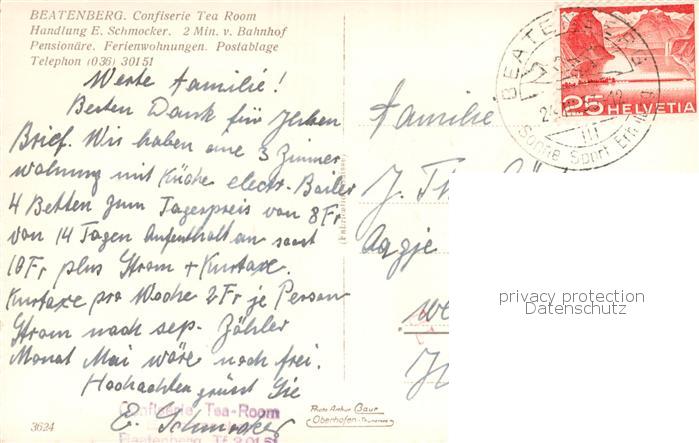 BEATENBERG. Confiserie Tea Room
Handlung E. Schmocker. 2 Min. v. Bahnhof
Pensionäre. Ferienwohnungen. Postablage
Telephon (036) 30151
Werte Familie!
Besten Dank für Ihren
Brief. Wir haben eine 3 Zimmer
wohnung mit Küche electr. Boiler
4 Betten zum Tagespreis von 8 Fr
von 14 Tagen Aufenthalt an sonst
10 Fr plus Strom + Kurtaxe.
Kurtaxe pro Woche 2 Fr je Person
Strom nach sep. Zähler
Monat Mai wäre noch frei.
Hochachten grüsst Sie
E. Schmocker
Confiserie Tea-Room
Beatenberg Tf 30151
3624
Photo Arthur Baur
Oberhofen-Thunersee
BEATENBERG
Sonne Sport Erholung
25 HELVETIA
Familie
J. Th
Aagje
privacy protection
Datenschutz